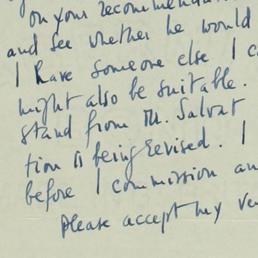 on your recommendat
and see whether he would
I have someone else I c
might also be suitable.
stand from Mr. Salvat
tion is being revised. I
before I commission an
Please accept my ve